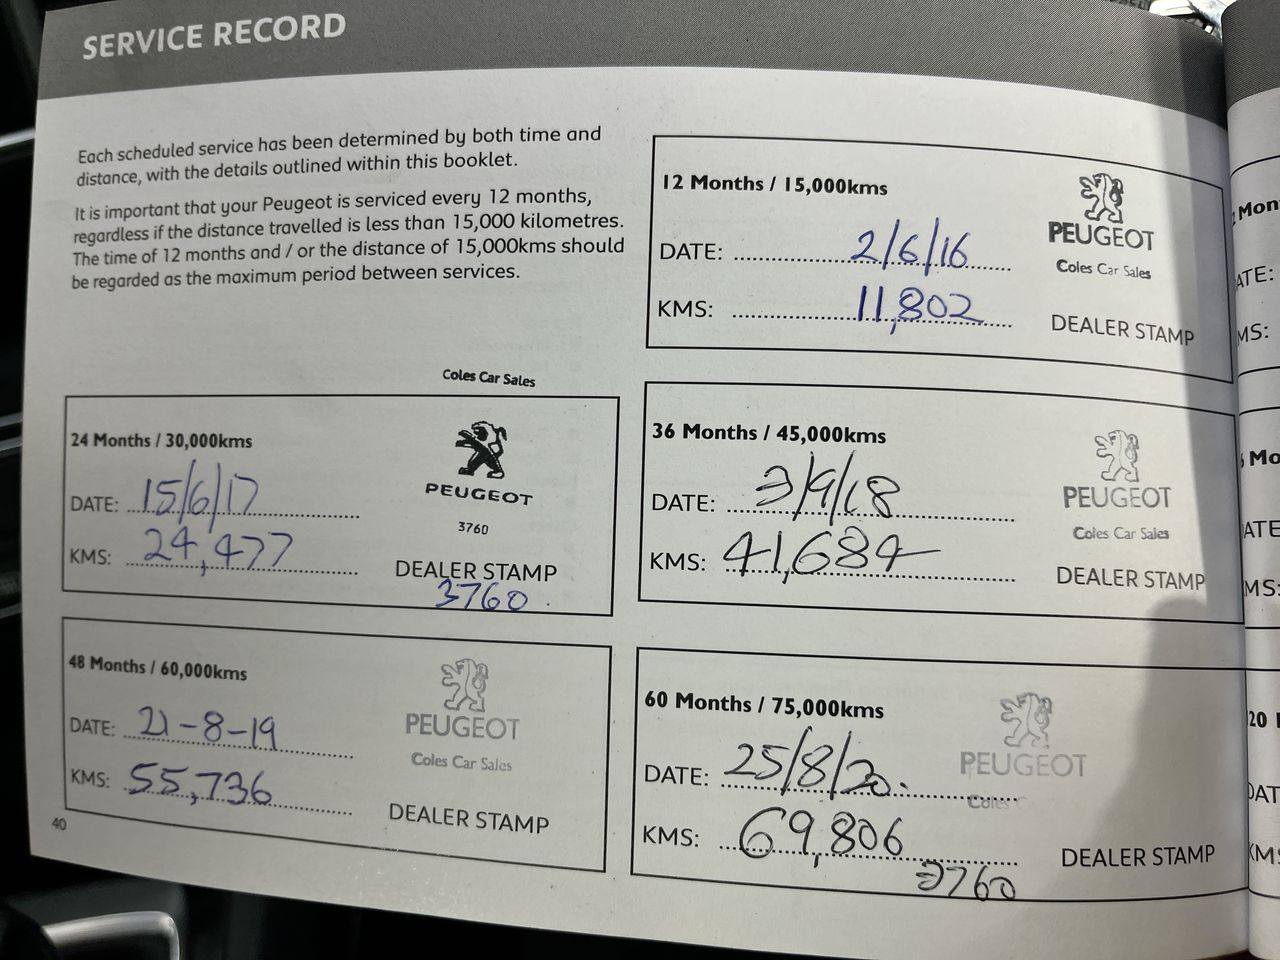 SERVICE RECORD
Each scheduled service has been determined by both time and
distance, with the details outlined within this booklet.
It is important that your Peugeot is serviced every 12 months,
regardless if the distance travelled is less than 15,000 kilometres.
The time of 12 months and / or the distance of 15,000kms should
be regarded as the maximum period between services.
12 Months / 15,000kms
PEUGEOT
Coles Car Sales
DATE: 2/6/16
KMS: 11,802
DEALER STAMP
Coles Car Sales
24 Months / 30,000kms
PEUGEOT
3760
DATE: 15/6/17
KMS: 24,477
DEALER STAMP
3760
36 Months / 45,000kms
PEUGEOT
Coles Car Sales
DATE: 3/9/18
KMS: 41,684
DEALER STAMP
48 Months / 60,000kms
PEUGEOT
Coles Car Sales
DATE: 21-8-19
KMS: 55,736
DEALER STAMP
60 Months / 75,000kms
PEUGEOT
Coles
DATE: 25/8/20.
KMS: 69,806
3760
DEALER STAMP
40